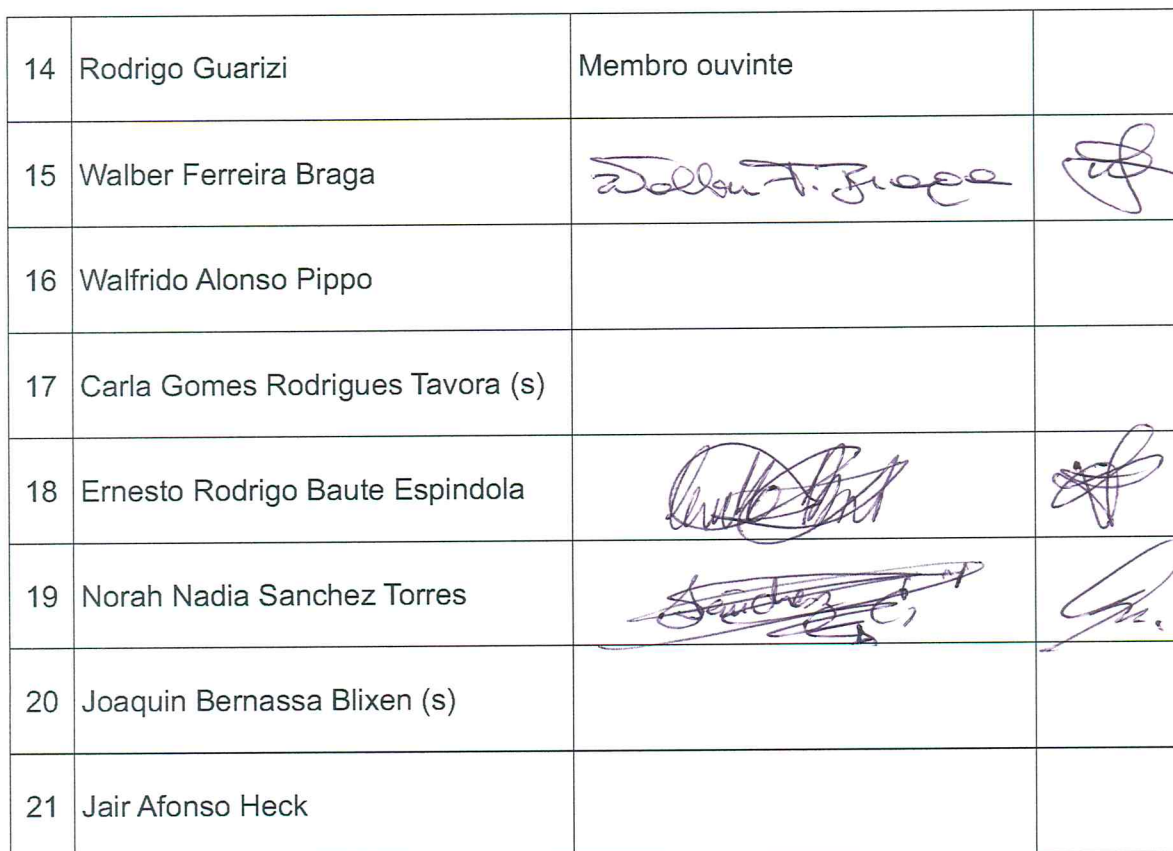 14 Rodrigo Guarizi Membro ouvinte
15 Walber Ferreira Braga Walber F. Braga
16 Walfrido Alonso Pippo
17 Carla Gomes Rodrigues Tavora (s)
18 Ernesto Rodrigo Baute Espindola
19 Norah Nadia Sanchez Torres Sánchez
20 Joaquin Bernassa Blixen (s)
21 Jair Afonso Heck